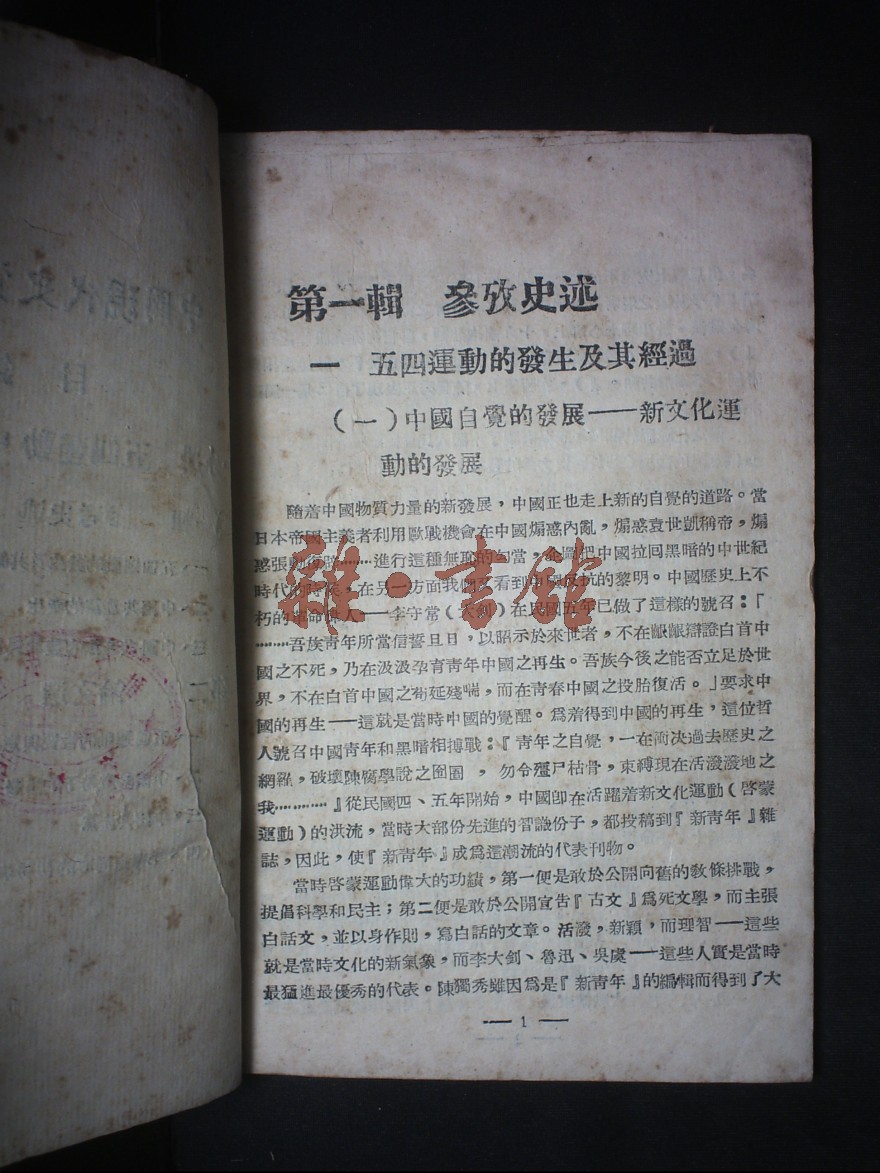 第一輯　參攷史述
一　五四運動的發生及其經過
（一）中國自覺的發展——新文化運
動的發展
隨着中國物質力量的新發展，中國正也走上新的自覺的道路。當
日本帝國主義者利用歐戰機會在中國煽惑內亂，煽惑袁世凱稱帝，煽
惑張勳復辟………進行這種無恥的勾當，企圖把中國拉回黑暗的中世紀
時代的時候，在另一方面我們又看到中國反抗的黎明。中國歷史上不
朽的革命偉人——李守常（大釗）在民國五年已做了這樣的號召：「
………吾族靑年所當信誓旦旦，以昭示於來世者，不在齦齦辯證白首中
國之不死，乃在汲汲孕育靑年中國之再生。吾族今後之能否立足於世
界，不在白首中國之苟延殘喘，而在靑春中國之投胎復活。」要求中
國的再生——這就是當時中國的覺醒。爲着得到中國的再生，這位哲
人號召中國靑年和黑暗相搏戰：『靑年之自覺，一在衝決過去歷史之
網羅，破壞陳腐學說之囹圄，勿令殭尸枯骨，束縛現在活潑潑地之
我…………』從民國四、五年開始，中國卽在活躍着新文化運動（啓蒙
運動）的洪流，當時大部份先進的智識份子，都投稿到『新靑年』雜
誌，因此，使『新靑年』成爲這潮流的代表刊物。
當時啓蒙運動偉大的功績，第一便是敢於公開向舊的敎條挑戰，
提倡科學和民主；第二便是敢於公開宣告『古文』爲死文學，而主張
白話文，並以身作則，寫白話的文章。活潑，新穎，而理智——這些
就是當時文化的新氣象，而李大釗、魯迅、吳虞——這些人實是當時
最猛進最優秀的代表。陳獨秀雖因爲是『新靑年』的編輯而得到了大
— 1 —
雜·書館